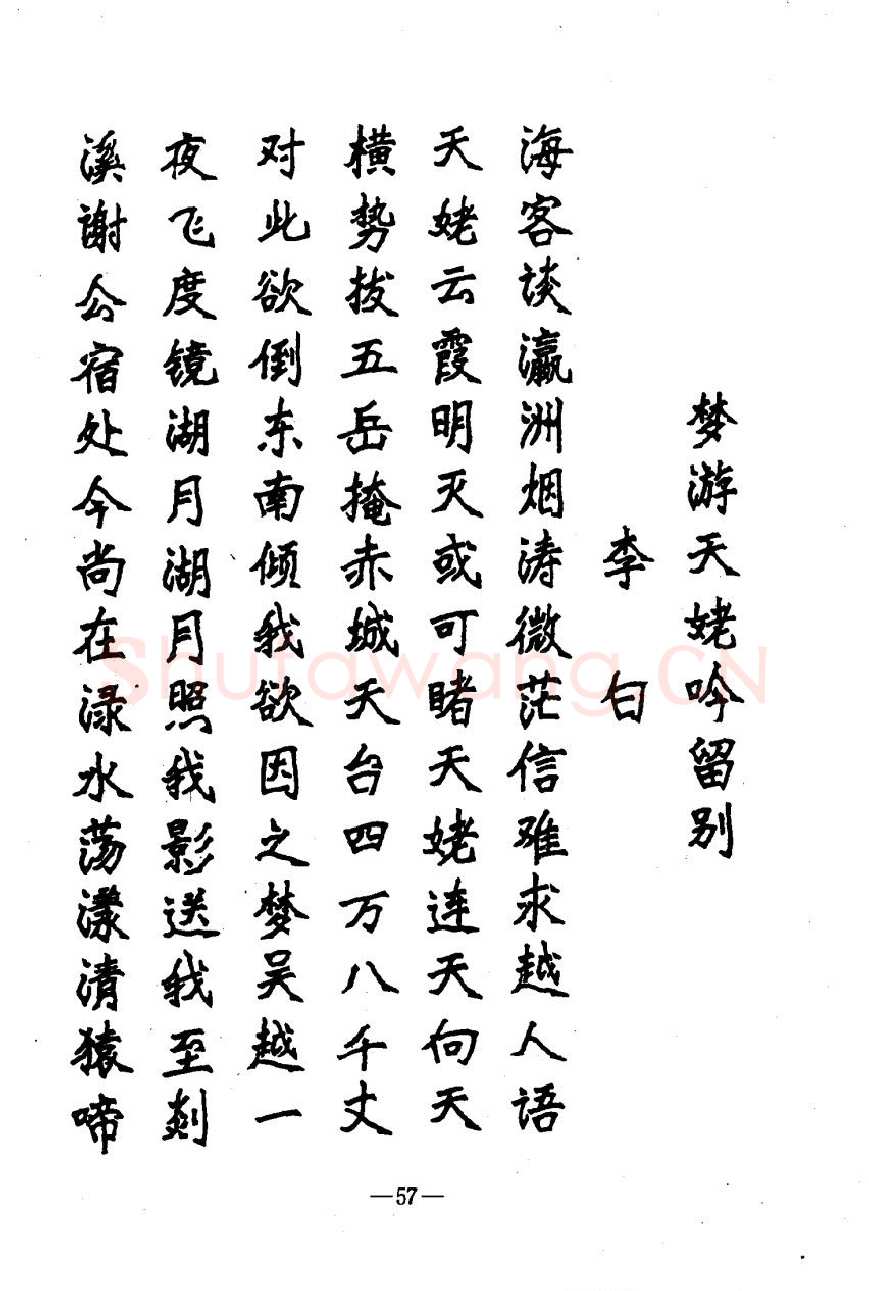 梦游天姥吟留别
李白
海客谈瀛洲烟涛微茫信难求越人语
天姥云霞明灭或可睹天姥连天向天
横势拔五岳掩赤城天台四万八千丈
对此欲倒东南倾我欲因之梦吴越一
夜飞度镜湖月湖月照我影送我至剡
溪谢公宿处今尚在渌水荡漾清猿啼
—57—
Shufawang.CN